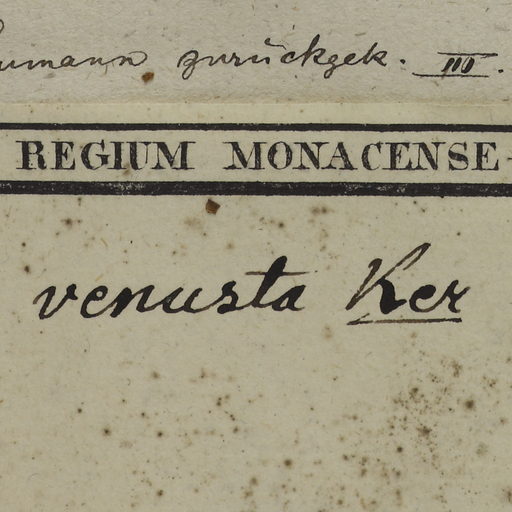 zurückgek. III.
REGIUM MONACENSE
venusta Ker